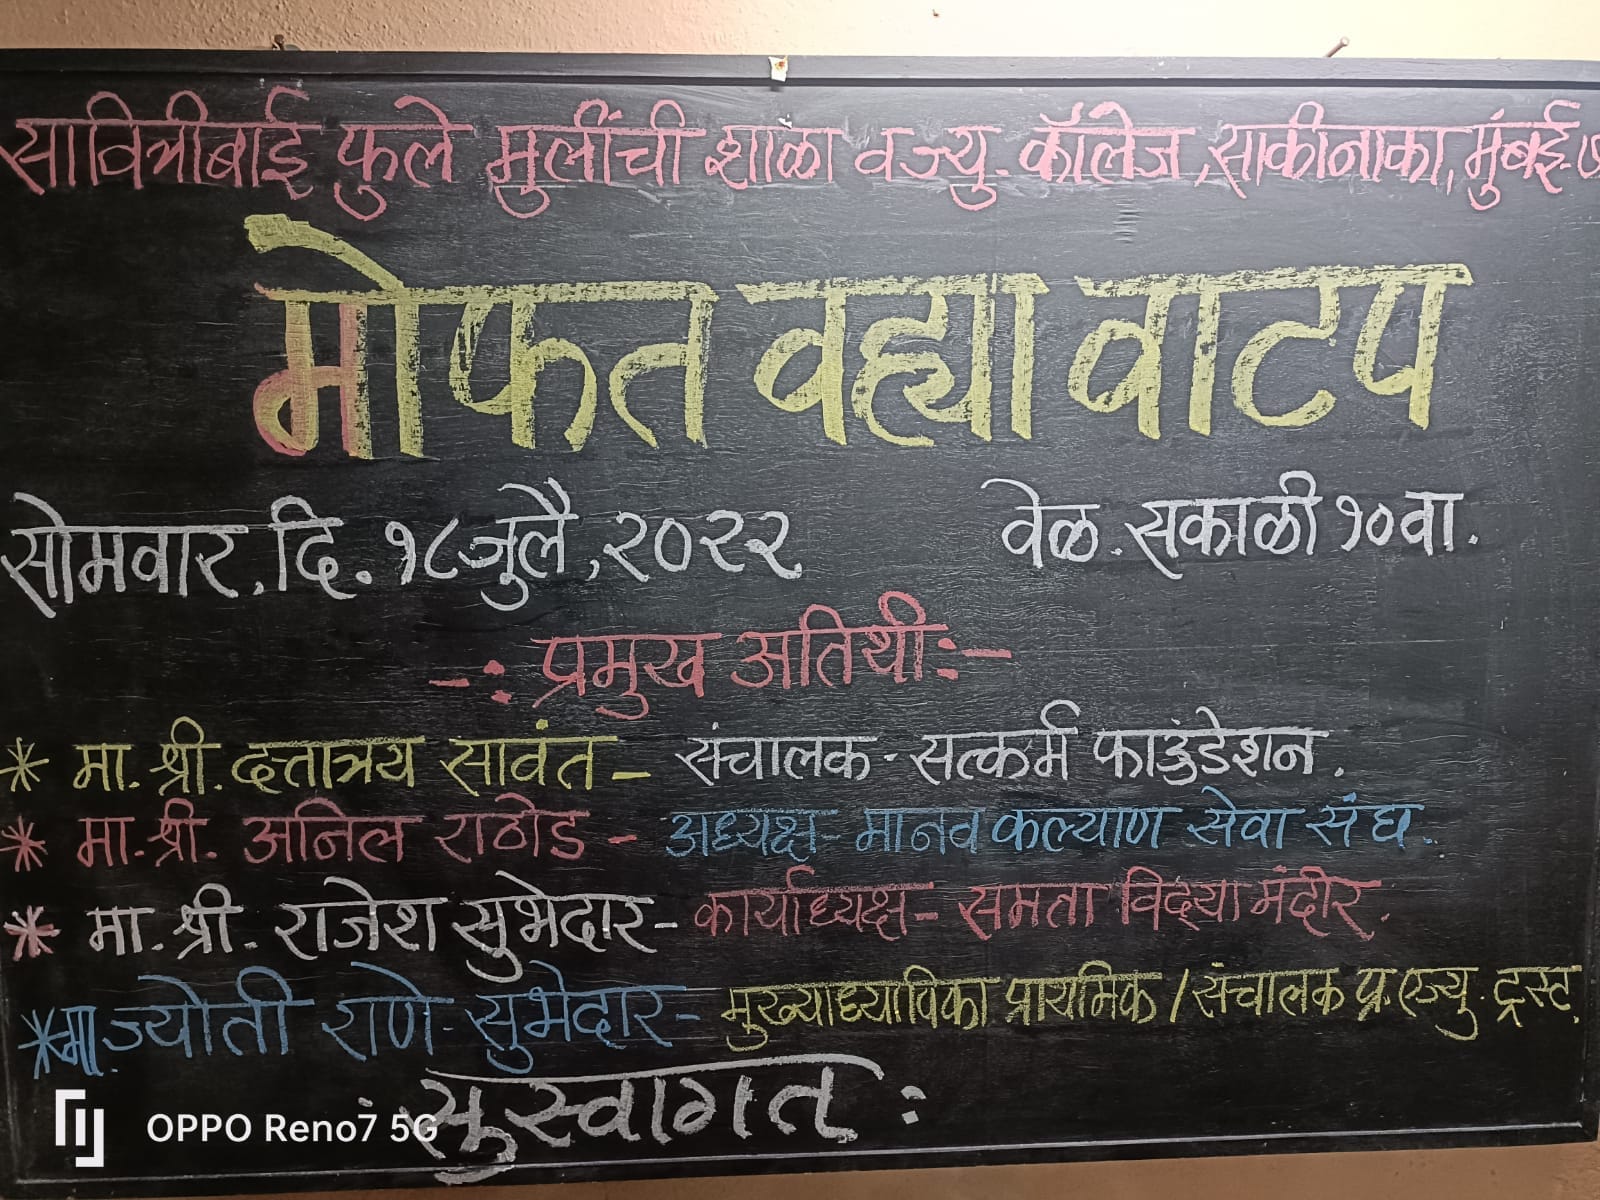 सावित्रीबाई फुले मुलींची शाळा व ज्यु. कॉलेज, साकीनाका, मुंबई-७
मोफत वह्या वाटप
सोमवार, दि. १८ जुलै, २०२२ वेळ. सकाळी १० वा.
-: प्रमुख अतिथी:-
* मा. श्री. दत्तात्रय सावंत - संचालक - सत्कर्म फाउंडेशन.
* मा. श्री. अनिल राठोड - अध्यक्ष - मानव कल्याण सेवा संघ.
* मा. श्री. राजेश सुभेदार - कार्याध्यक्ष - समता विद्या मंदीर.
* मा. ज्योती राणे - सुभेदार - मुख्याध्यापिका प्राथमिक / संचालक प्र. एज्यु. ट्रस्ट.
: सुस्वागत :
OPPO Reno7 5G